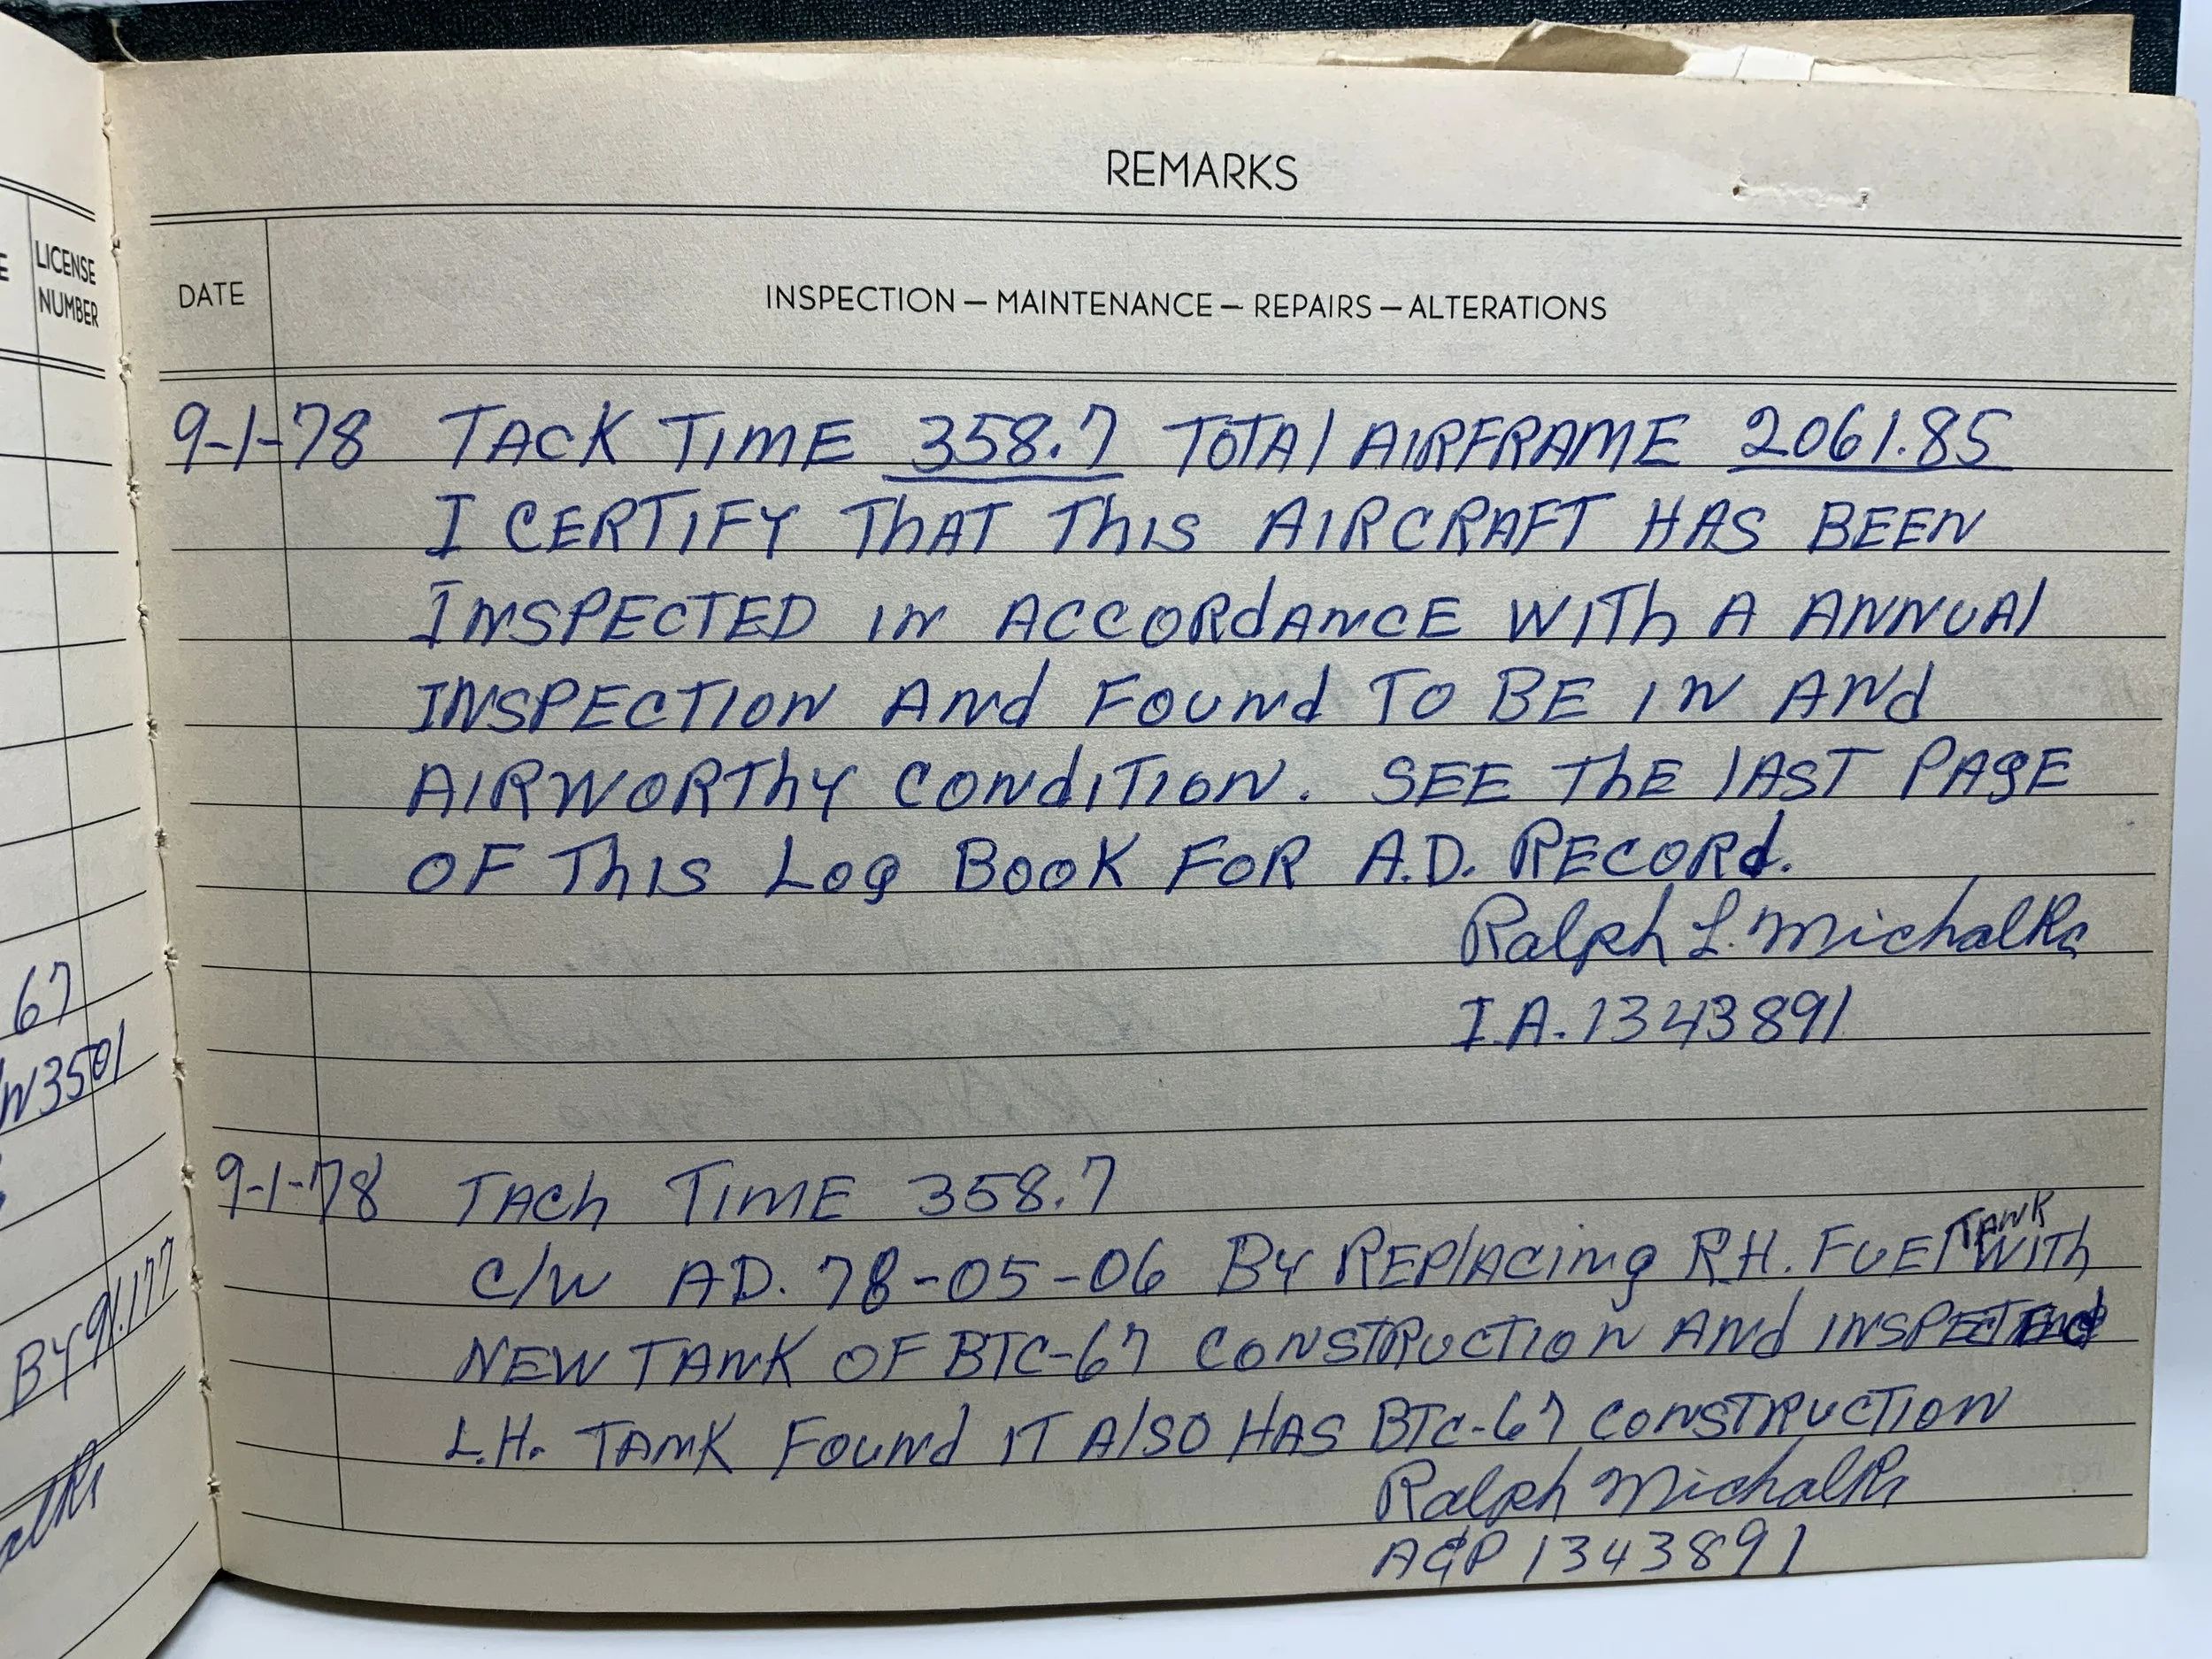 E
LICENSE
NUMBER
67
W3501
BY 91.177
REMARKS
DATE
INSPECTION — MAINTENANCE — REPAIRS — ALTERATIONS
9-1-78 TACK TIME 358.7 TOTAl AIRFRAME 2061.85
I CERTIFY ThAT ThIS AIRCRAFT HAS BEEN
INSPECTED IN ACCORdANCE WITh A ANNUAl
INSPECTION ANd FOUNd TO BE IN ANd
AIRWORThY CONdITION. SEE ThE lAST PAgE
OF ThIS Log BOOK FOR A.D. RECORd.
Ralph L. Michalk
I.A. 1343891
9-1-78 TACh TIME 358.7
C/W AD. 78-05-06 BY REPlACINg R.H. FUEl TANK WITh
NEW TANK OF BTC-67 CONSTRUCTION ANd INSPECTEd
L.H. TANK FOUNd IT AlSO HAS BTC-67 CONSTRUCTION
Ralph Michalk
A&P 1343891